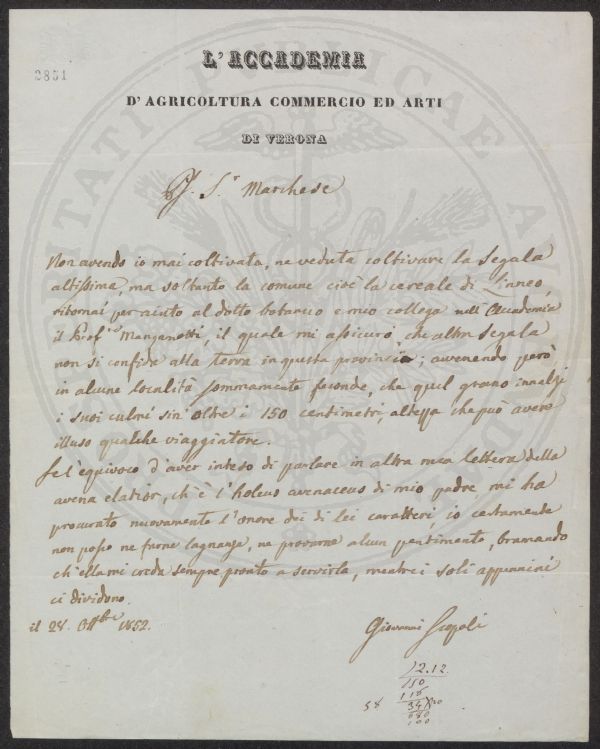 2851
L'ACCADEMIA
D'AGRICOLTURA COMMERCIO ED ARTI
DI VERONA
S.r Marchese
Non avendo io mai coltivata, ne veduta coltivare la Segala
altissima, ma soltanto la comune cioè la cereale di Linneo,
ritornai per aiuto al dotto botanico e mio collega nell'Accademia
il Prof.r Manganotti, il quale mi assicurò, che altra Segala
non si confide alla terra in questa provincia; avvenendo però
in alcune località sommamente feconde, che quel grano innalzi
i suoi culmi sin'oltre i 150 centimetri, altezza che può avere
illuso qualche viaggiatore.
Se l'equivoco d'aver inteso di parlare in altra mia lettera della
avena elatior, ch'è l'holcus avenaceus di mio padre, mi ha
procurato nuovamente l'onore dei di lei caratteri, io certamente
non posso ne farne lagnanza, ne provarne alcun pentimento, bramando
ch'ella mi creda sempre pronto a servirla, mentre i soli appennini
ci dividono.
il 28. 1852.
Giovanni Scopoli
12.12
150
116
58 34
680